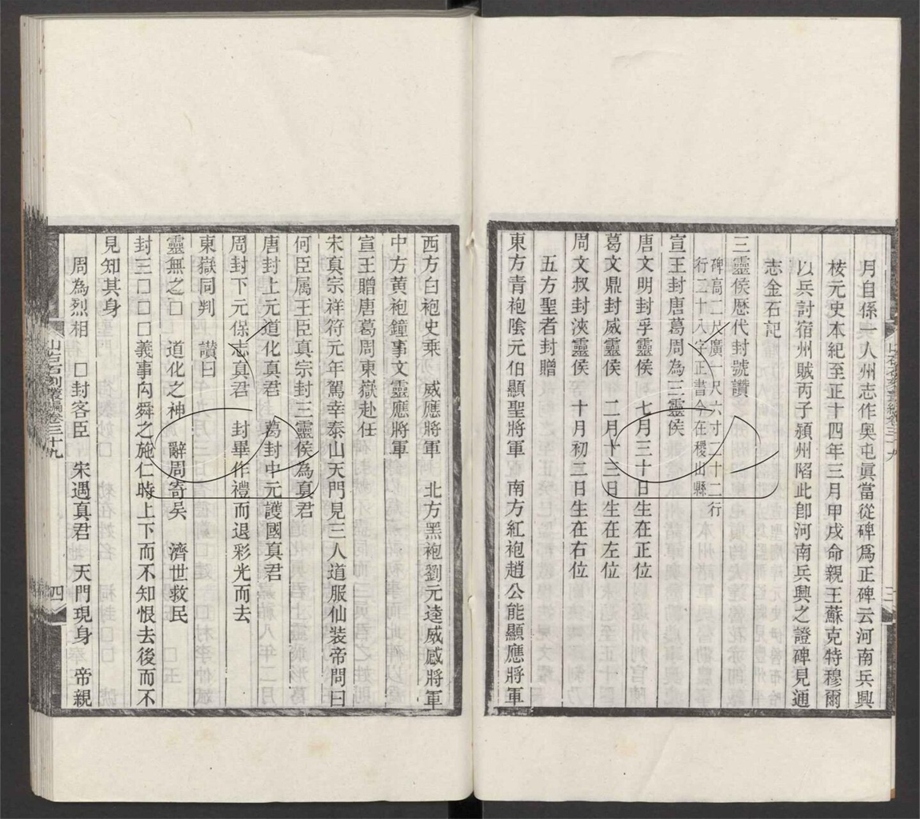 月自係一人州志作奧屯眞當從碑爲正碑云河南兵興
核元史本紀至正十四年三月甲戌命親王蘇克特穆爾
以兵討宿州賊丙子潁州陷此卽河南兵興之證碑見通
志金石記
三靈侯歷代封號讚
碑高二尺廣一尺六寸二十二行
行二十八字正書今在稷山縣
宣王封唐葛周為三靈侯
唐文明封孚靈侯　七月三十日生在正位
葛文鼎封威靈侯　二月十三日生在左位
周文叔封浹靈侯　十月初二日生在右位
五方聖者封贈
東方青袍陰元伯顯聖將軍　南方紅袍趙公能顯應將軍
西方白袍史乘　威應將軍　北方黑袍劉元達威感將軍
中方黃袍鐘事文靈應將軍
宣王贈唐葛周東嶽赴任
宋真宗祥符元年駕幸泰山天門見三人道服仙裝帝問曰
何臣属王臣真宗封三靈侯為真君
唐封上元道化真君　葛封中元護國真君
周封下元保志真君　封畢作禮而退彩光而去
東嶽同判　讚曰
靈無之□　道化之神　辭周寄吴　濟世救民　□王
封三□□□□義事内舜之施仁㫭上下而不知恨去後而不
見知其身
周為烈相　□封客臣　宋遇真君　天門現身　帝親
山右石刻叢編卷三十九
四